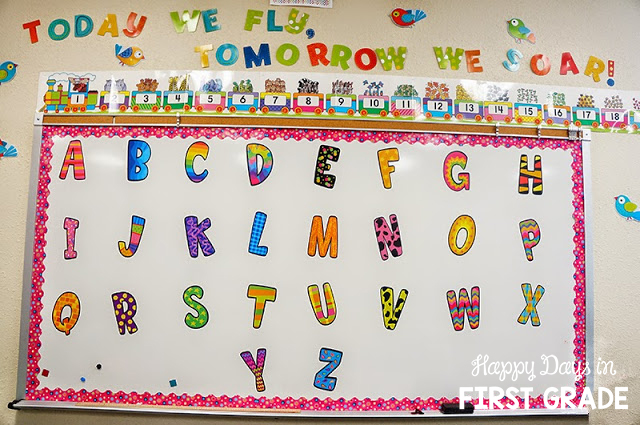 TODAY WE FLY,
TOMORROW WE SOAR!
1 2 3 4 5 6 7 8 9 10 11 12 13 14 15 16 17 18
A B C D E F G H
I J K L M N O P
Q R S T U V W X
Y Z
Happy Days in
FIRST GRADE